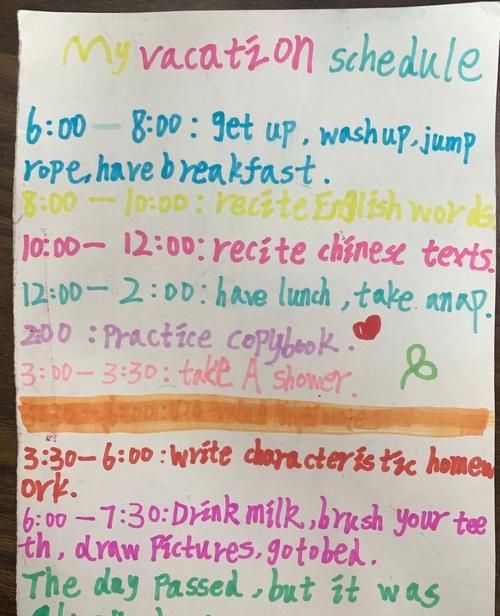 My vacation schedule
6:00 — 8:00: get up, wash up, jump
rope, have breakfast.
8:00 — 10:00: recite English words.
10:00— 12:00: recite chinese texts.
12:00— 2:00: have lunch, take a nap.
2:00 : Practice copybook.
3:00-3:30: take A shower.
3:30-6:00: write characteristic homew
ork.
6:00 —7:30: Drink milk, brush your tee
th, draw Pictures, go to bed.
The day Passed, but it was